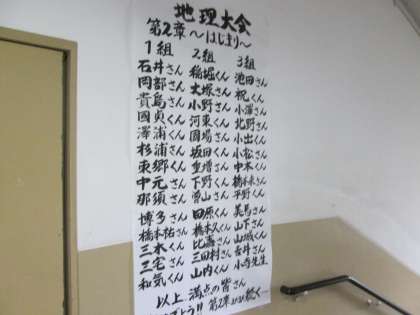 地理大会
第2章～はじまり～
1組 2組 3組
石井さん 稲堀くん 池田さん
岡部さん 大塚さん 祝くん
貴島さん 小野さん 小澤さん
國貞くん 河東くん 北野さん
澤浦くん 國場さん 小出くん
杉浦さん 坂田くん 小松さん
東郷くん 重増さん 中本くん
中元さん 下野くん 橋本さん
那須さん 曽山さん 平野くん
博多さん 田原くん 美馬さん
橋本祐さん 橋本久くん 山下さん
三木くん 比嘉さん 山城くん
三宅さん 三田村さん 吉井さん
和気くん 山内くん 小寺先生
以上 満点の皆さん
第2章